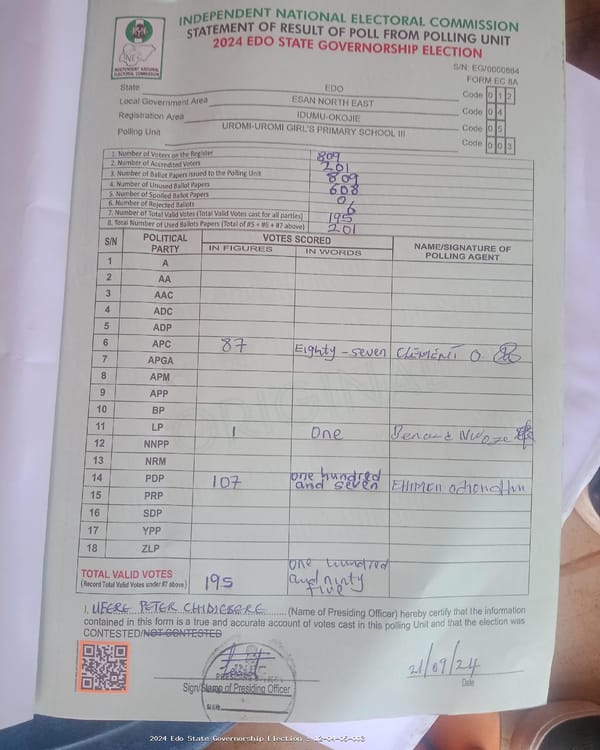 INDEPENDENT NATIONAL ELECTORAL COMMISSION
STATEMENT OF RESULT OF POLL FROM POLLING UNIT
2024 EDO STATE GOVERNORSHIP ELECTION
INEC
INDEPENDENT NATIONAL
ELECTORAL COMMISSION
S/N: EG/0000664
FORM EC 8A
State EDO Code 0 1 2
Local Government Area ESAN NORTH EAST Code 0 4
Registration Area IDUMU-OKOJIE Code 0 5
Polling Unit UROMI-UROMI GIRL'S PRIMARY SCHOOL III Code 0 0 3
1. Number of Voters on the Register 809
2. Number of Accredited Voters 201
3. Number of Ballot Papers Issued to the Polling Unit 809
4. Number of Unused Ballot Papers 608
5. Number of Spoiled Ballot Papers 0
6. Number of Rejected Ballots 6
7. Number of Total Valid Votes (Total Valid Votes cast for all parties) 195
8. Total Number of Used Ballots Papers (Total of #5 + #6 + #7 above) 201
S/N POLITICAL PARTY VOTES SCORED NAME/SIGNATURE OF POLLING AGENT
IN FIGURES IN WORDS
1 A
2 AA
3 AAC
4 ADC
5 ADP
6 APC 87 Eighty-seven CLEMENT O
7 APGA
8 APM
9 APP
10 BP
11 LP 1 One
12 NNPP
13 NRM
14 PDP 107 one hundred and seven
15 PRP
16 SDP
17 YPP
18 ZLP
TOTAL VALID VOTES 195 one hundred and ninty five
(Record Total Valid Votes under #7 above)
I, UFERE PETER CHIDIEBERE (Name of Presiding Officer) hereby certify that the information
contained in this form is a true and accurate account of votes cast in this polling Unit and that the election was
CONTESTED/NOT CONTESTED
21/09/24
Sign/Stamp of Presiding Officer
Date
2024 Edo State Governorship Election - 12-04-05-003